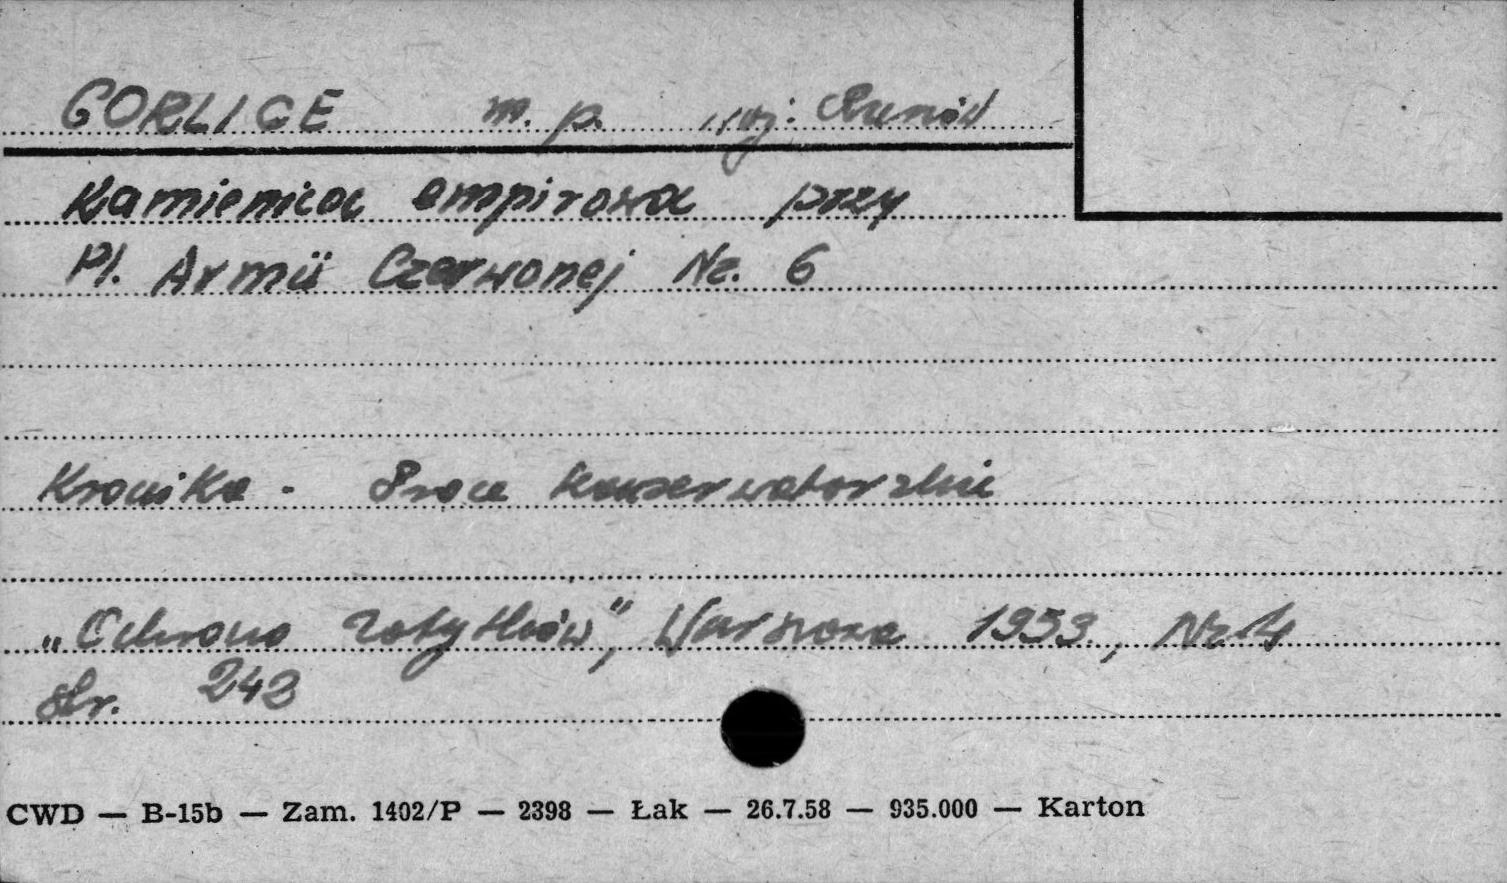 GORLICE m. p. woj. Rzeszów
Kamienica empirowa przy
Pl. Armii Czerwonej Nr. 6
Kronika - Prace konserwatorskie
„Ochrona Zabytków”, Warszawa 1953, Nr. 4
str. 243
CWD — B-15b — Zam. 1402/P — 2398 — Łak — 26.7.58 — 935.000 — Karton